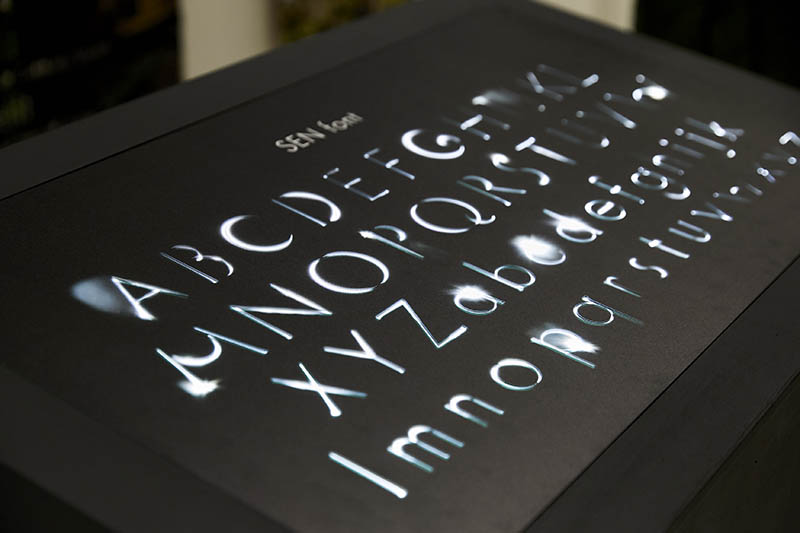 SEN font
ABCDEFGHIJKL
MNOPQRSTUVW
XYZabcdefghijk
lmnopqrstuvwxyz